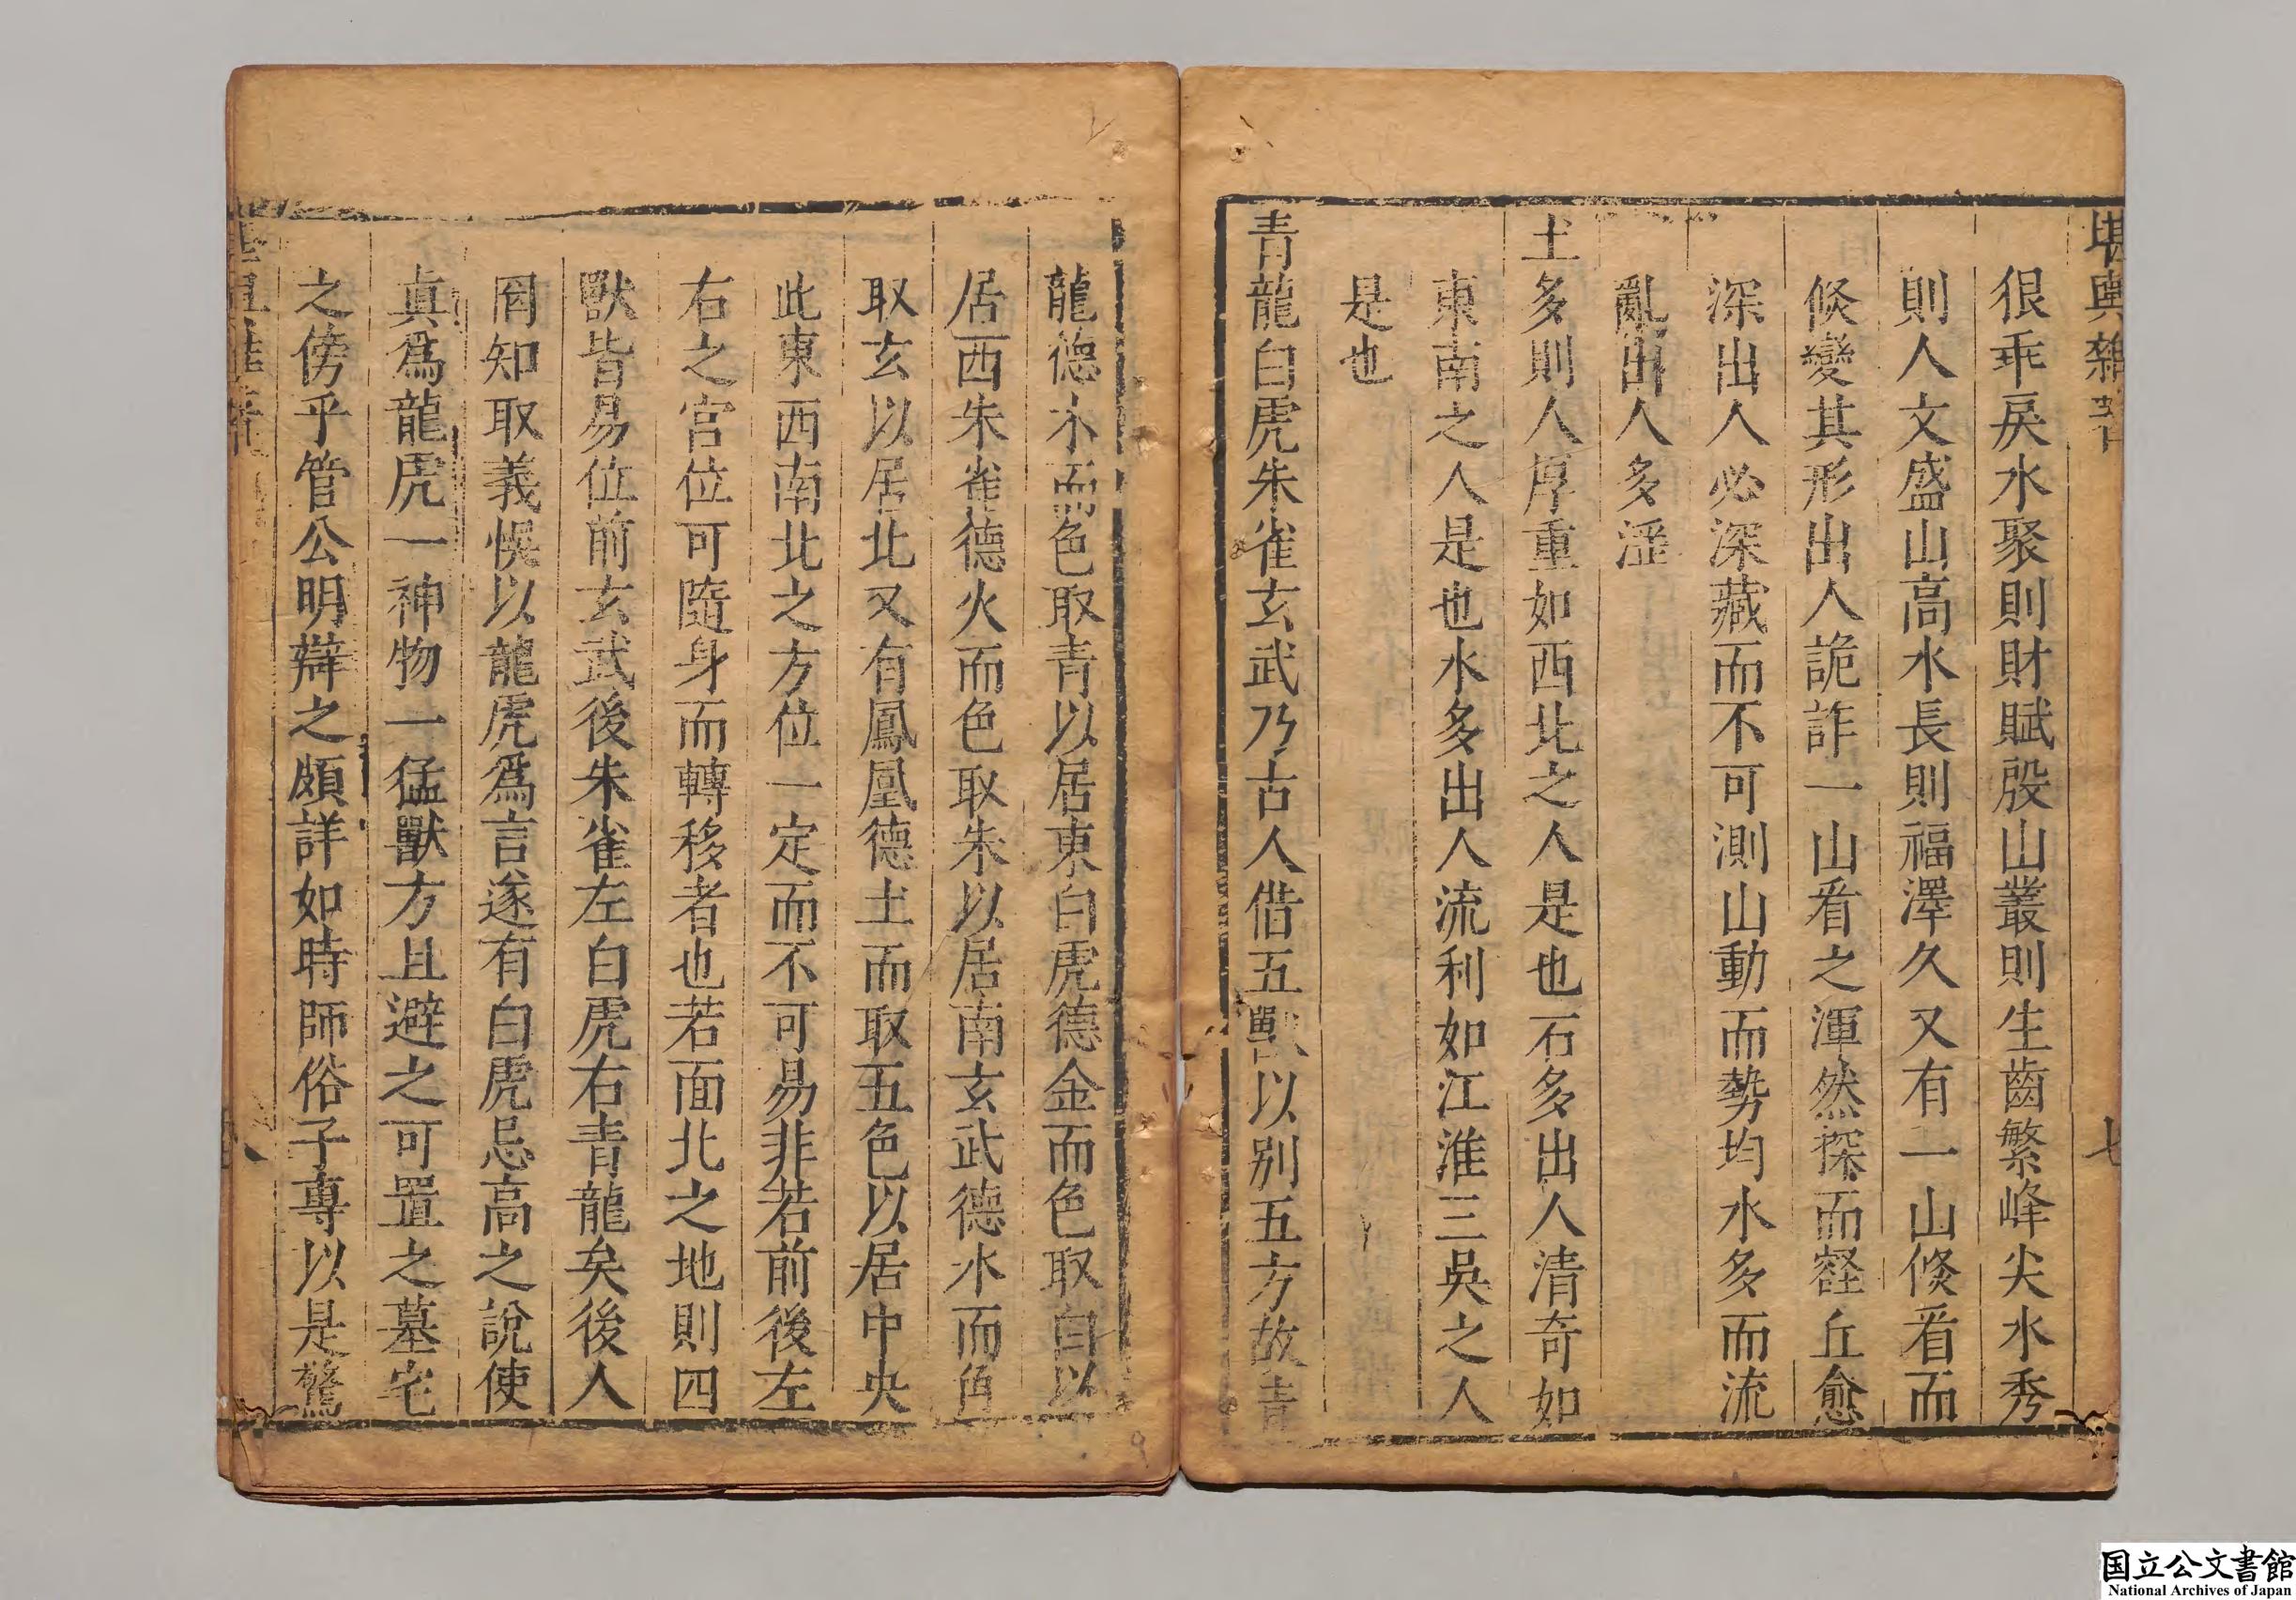 堪輿雜著
七
很乖戾水聚則財賦殷山叢則生齒繁峰尖水秀
則人文盛山高水長則福澤久又有一山倐看而
倐變其形出人詭詐一山看之渾然探而丘愈
深出人必深藏而不可測山動而勢均水多而流
亂出人多滛
土多則人厚重如西北之人是也石多出人清奇如
東南之人是也水多出人流利如江淮三吳之人
是也
青龍白虎朱雀玄武乃古人借五獸以別五方故青
龍德木而色取青以居東白虎德金而色取白以
居西朱雀德火而色取朱以居南玄武德水而色
取玄以居北又有鳳凰德土而取五色以居中央
此東西南北之方位一定而不可易非若前後左
右之宮位可隨身而轉移者也若面北之地則四
獸皆易位前玄武後朱雀左白虎右青龍矣後人
罔知取義悞以龍虎為言遂有白虎忌高之說使
真爲龍虎一神物一猛獸方且避之可置之墓宅
之傍乎管公明辯之頗詳如時師俗子專以是驚
国立公文書館
National Archives of Japan